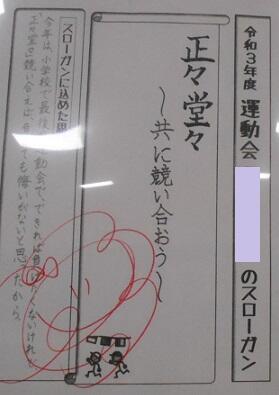 令和3年度 運動会 のスローガン
正々堂々
～共に競い合おう～
スローガンに込めた思
今年は、小学校で最後の運動会で、できれば負けたくないけれど、
正々堂々競い合えば、負けても悔いがないと思ったから。